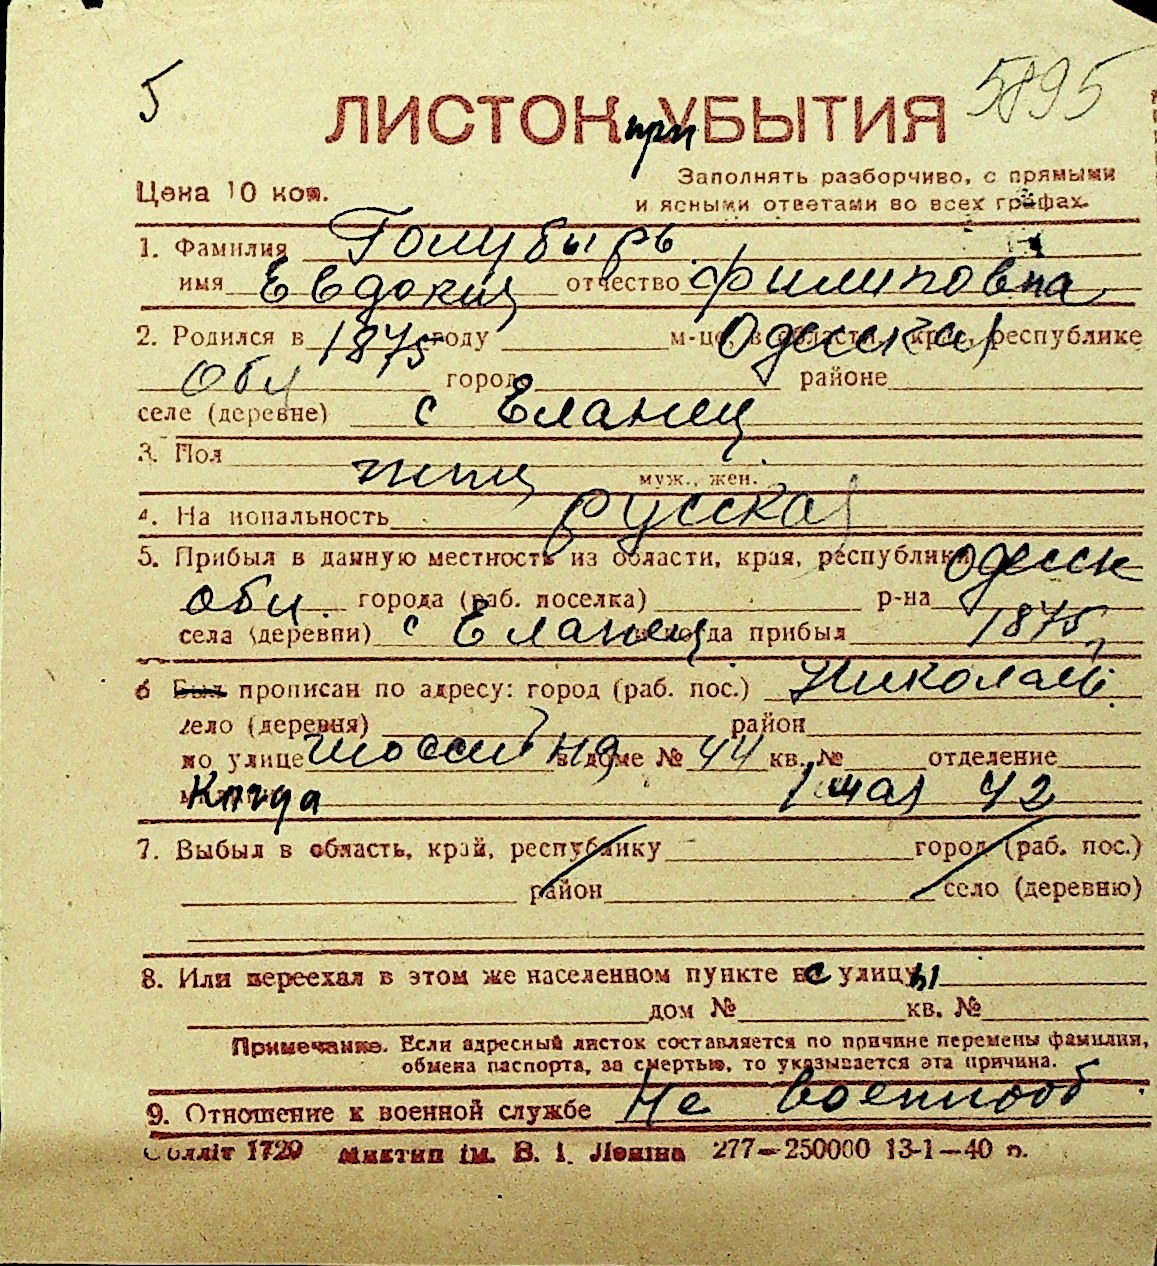 5
5895
ЛИСТОК при УБЫТИЯ
Цена 10 коп.
Заполнять разборчиво, с прямыми
и ясными ответами во всех графах.
1. Фамилия Голубырь
имя Евдокия отчество Филиповна
2. Родился в 1875 году м-це, в области, крае, республике Одесская
Обл город районе
селе (деревне) с Еланец
3. Пол жен
муж., жен.
4. На иональность русская
5. Прибыл в данную местность из области, края, республики Одесск
обл. города (раб. поселка) р-на
села (деревни) с Еланец когда прибыл 1875
6 Был прописан по адресу: город (раб. пос.) Николаев
село (деревня) район
по улице в доме № 44 кв. № отделение
Когда 1 мая 42
7. Выбыл в область, край, республику город (раб. пос.)
район село (деревню)
8. Или переехал в этом же населенном пункте с улицы
дом № кв. №
Примечание. Если адресный листок составляется по причине перемены фамилии,
обмена паспорта, за смертью, то указывается эта причина.
9. Отношение к военной службе Не военнооб.
Облліт 1729 Миктип ім. В. І. Леніна 277—250000 13-1—40 р.